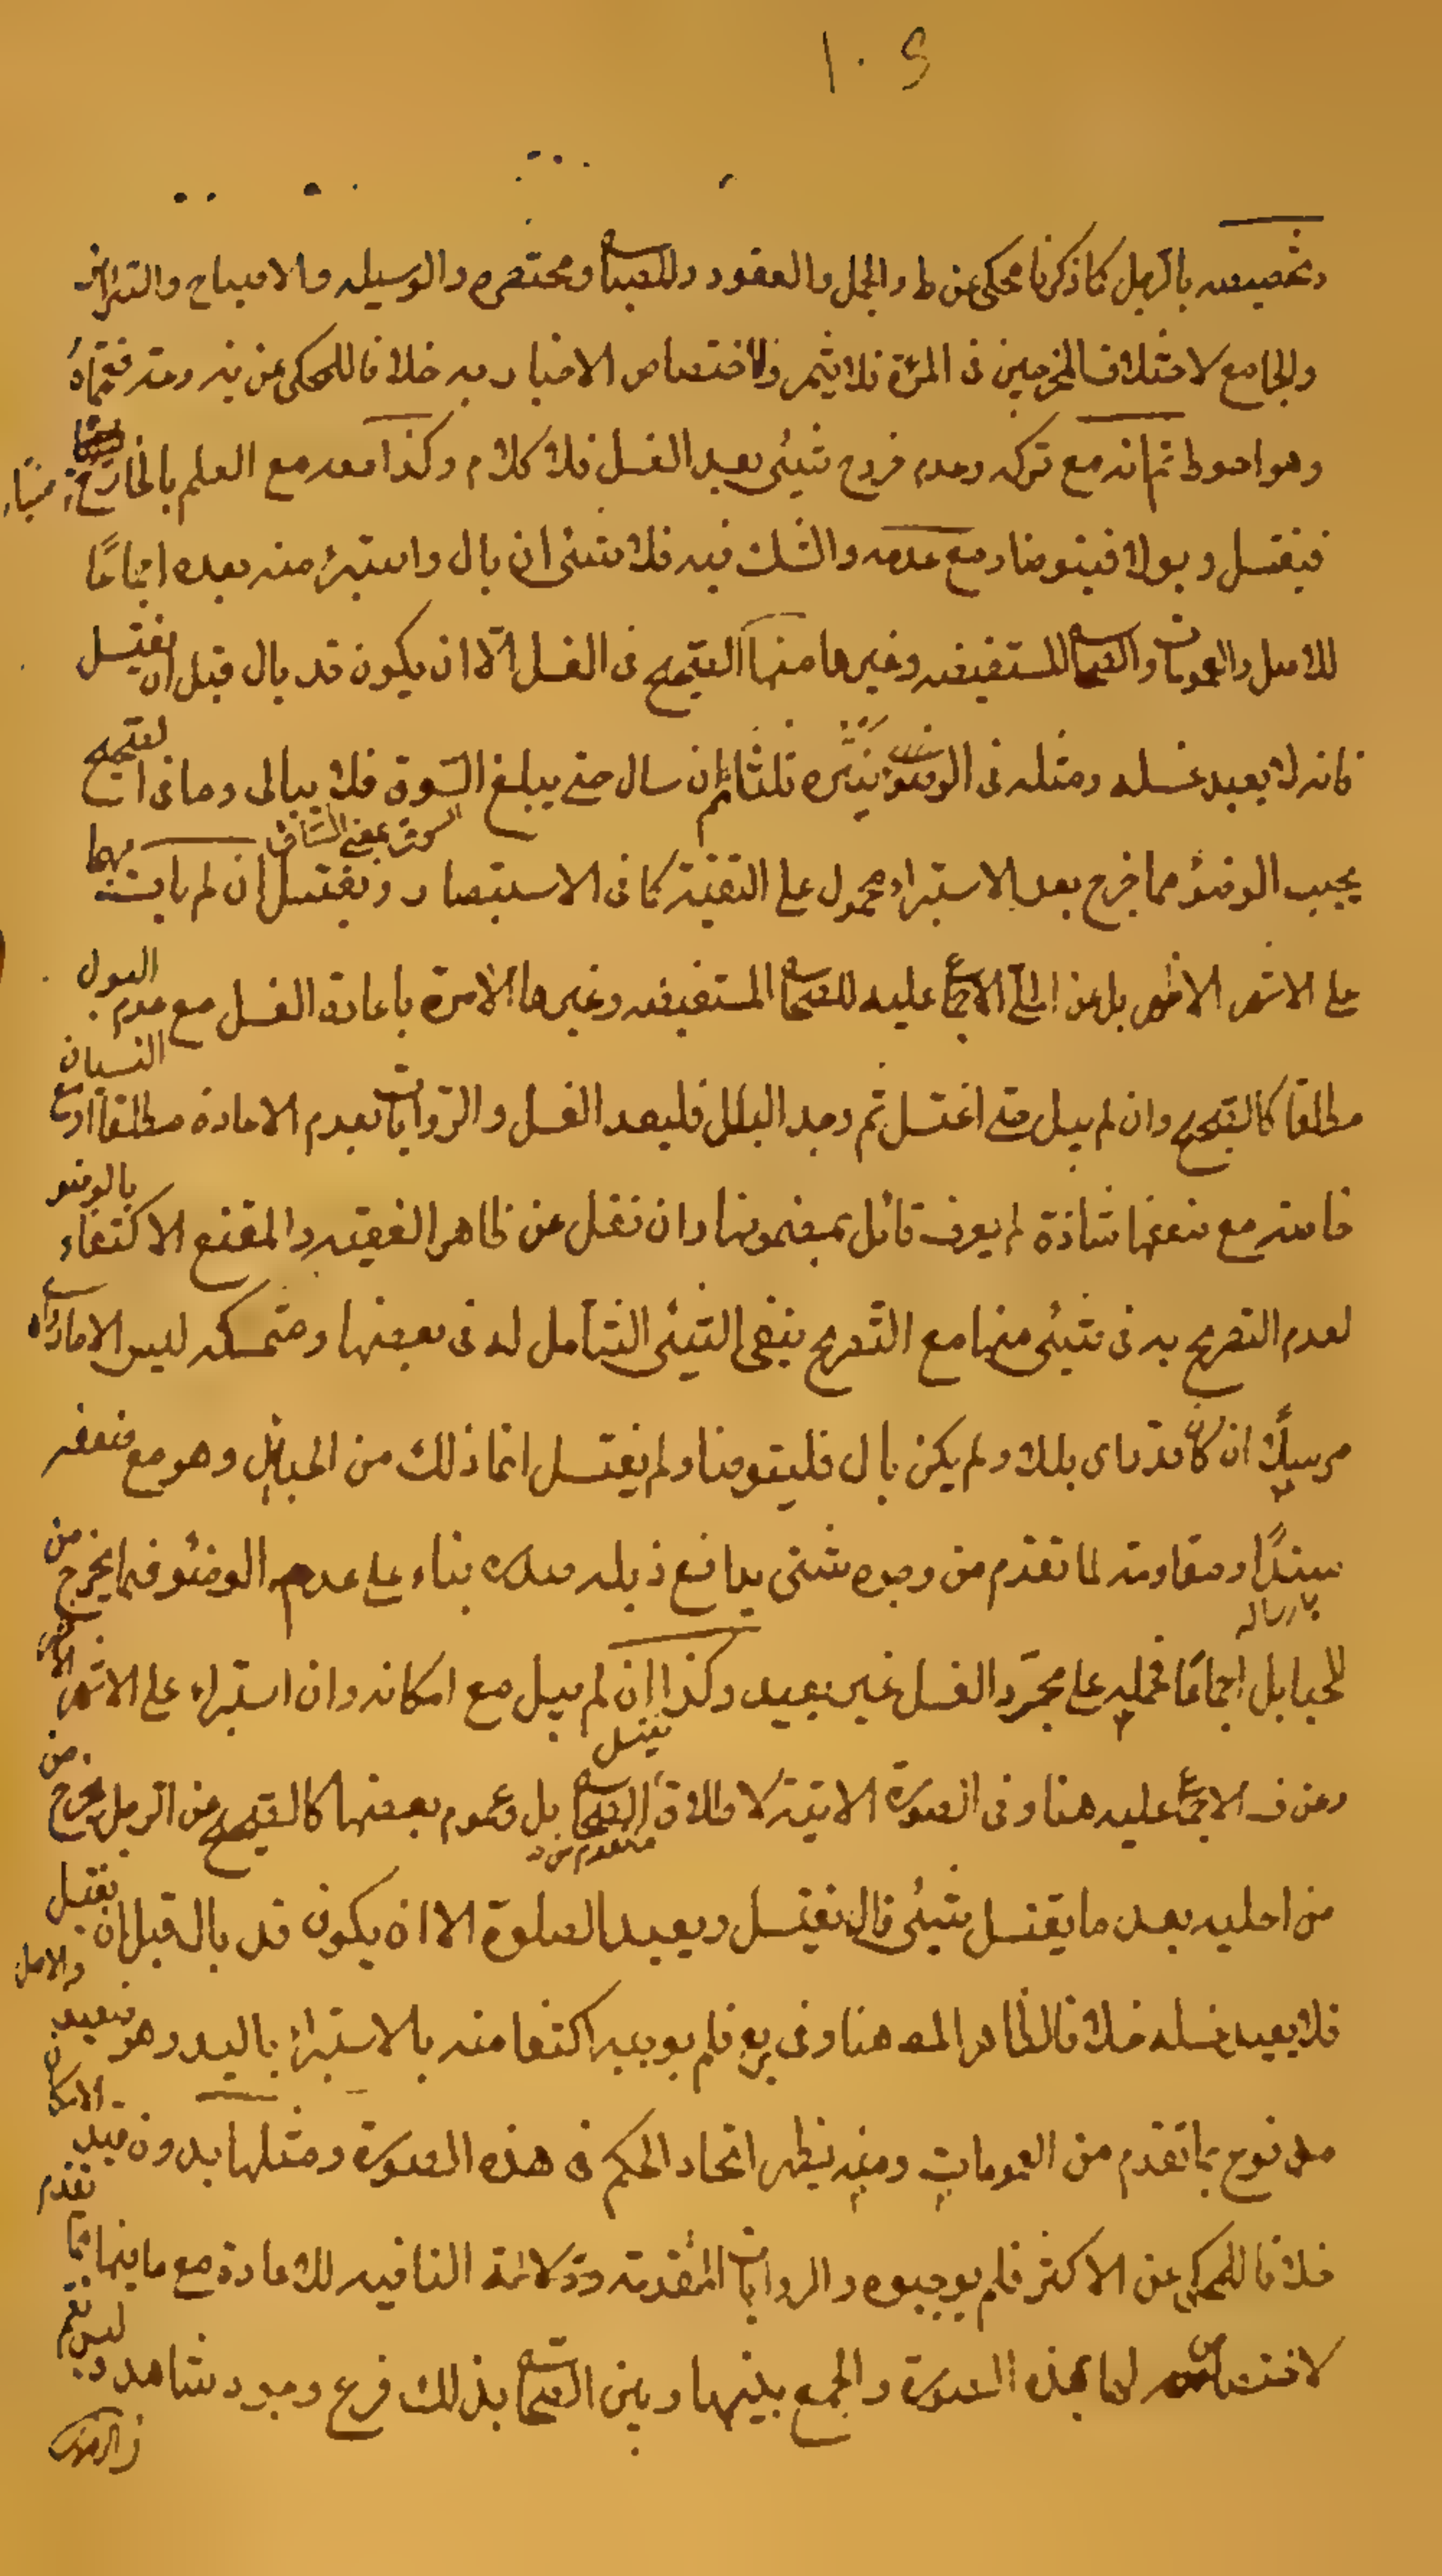 ١٠٤
وتخصيصه بالرجل كما ذكرنا محكي عن ط والجمل والعقود والمصباح ومختصره والوسيله والاصباح والسرائر
والجامع لاختلاف المخرجين في المرئة فلا يثمر ولاختصاص الاخبار به خلافا للمحكي عن يه ومتر فعمماه
وهو احوط ثم انه مع تركه وعدم خروج شيئ بعد الغسل فلا كلام وكذا معه مع العلم بالخارج منيّاً
فيغتسل وبولا فيتوضا ومع عدمه والشك فيه فلا شيئ ان بال واستبرء منه بعده اجماعًا
للاصل والعمومات والصحاح المستفيضه وغيرها منها الصحيح في الغسل الا ان يكون قد بال قبل ان يغتسل
فانه لا يعيد غسله ومثله في الوضوء ينتره ثلثا ثم ان سال حتى يبلغ السوق فلا يبالي وما في الصحيح
السوق بمعنى الساق
يجب الوضوء مما خرج بعد الاستبراء محمول على التقية كما في الاستبصار ويغتسل ان لم يات بهما
على الاشهر الاظهر بل عن الحلي الاجماع عليه للصحاح المستفيضه وغيرها الامرة باعادة الغسل مع عدم البول
مطلقا كالصحيح وان لم يبل حتى اغتسل ثم وجد البلل فليعد الغسل والروايات بعدم الاعادة مطلقا او مع النسيان
خاصة مع ضعفها شاذة لم يعرف قائل بمضمونها وان نقل عن ظاهر الفقيه والمقنع الاكتفاء بالوضو
لعدم التصريح به في شيئ منها مع التصريح بنفي الشيئ الشامل له في بعضها ومتمسكه ليس الا ما رواه
مرسلًا ان كان قد راى بللا ولم يكن بال فليتوضا ولم يغتسل انما ذلك من الحبائل وهو مع ضعفه
سندًا ومقاومته لما تقدم من وجوه شتى يدافع ذيله صدره بناء على عدم الوضوء فيما يخرج من
بارساله
الحبايل اجماعًا فحمله على مجرّد الغسل غير بعيد وكذا ان لم يبل مع امكانه وان استبراء على الاشهر
يغتسل
وعن ف الاجماع عليه هنا وفي الصورة الاتية لاطلاق الصحاح بل وعموم بعضها كالصحيح عن الرجل يخرج من
من احليله بعد ما يغتسل شيئ قال يغتسل ويعيد الصلوة الا ان يكون قد بال قبل ان يغتسل
فلا يعيد غسله خلافا لظاهر المصه هنا وفي يع فلم يوجبه اكتفا منه بالاستبراء باليد وهو ضعيف والاصل
مدفوع بما تقدم من العمومات ومنه يظهر اتحاد الحكم في هذه الصورة ومثلها بدون قيد الامكان
خلافا للمحكي عن الاكثر فلم يوجبوه والروايات المتقدمة النافيه للاعادة مع ما فيها مما تقدم
لا اختصاص لها بهذه الصورة والجمع بينها وبين الصحاح بذلك فرع وجود شاهد وليس نعم